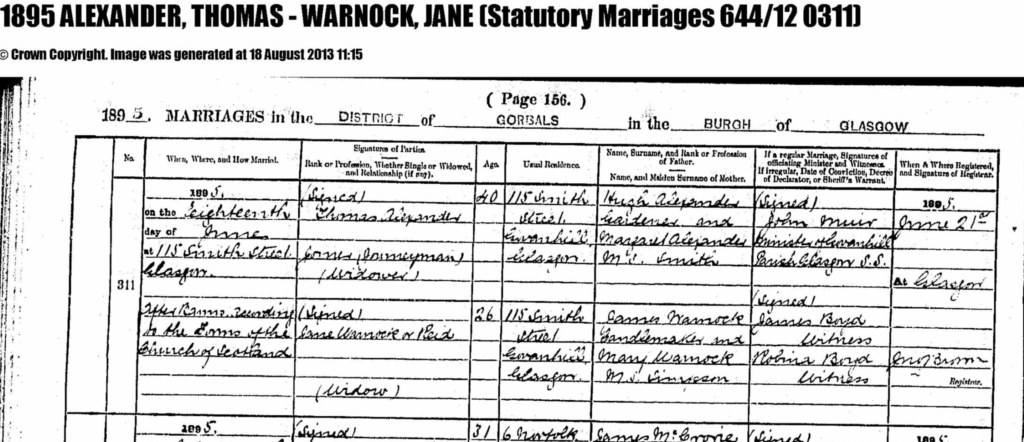 1895 ALEXANDER, THOMAS - WARNOCK, JANE (Statutory Marriages 644/12 0311)
© Crown Copyright. Image was generated at 18 August 2013 11:15
( Page 156. )
1895. MARRIAGES in the DISTRICT of GORBALS in the BURGH of GLASGOW
No.
When, Where, and How Married.
Signatures of Parties.
Rank or Profession, Whether Single or Widowed, and Relationship (if any).
Age.
Usual Residence.
Name, Surname, and Rank or Profession of Father.
Name, and Maiden Surname of Mother.
If a regular Marriage, Signatures of officiating Minister and Witnesses.
If irregular, Date of Conviction, Decree of Declarator, or Sheriff's Warrant.
When & Where Registered, and Signature of Registrar.
311
1895.
on the Eighteenth
day of June
at 115 Smith Street
Glasgow.
After Banns according
to the Forms of the
Church of Scotland
(Signed)
Thomas Alexander
(Journeyman)
(Widower)
(Signed)
Jane Warnock or Reid
(Widow)
40
26
115 Smith
Street
Govanhill
Glasgow.
115 Smith
Street
Govanhill
Glasgow.
Hugh Alexander
Gardener and
Margaret Alexander
M.S. Smith
James Warnock
Candlemaker and
Mary Warnock
M.S. Simpson
(Signed)
John Muir
Minister of Govanhill
Parish Glasgow S.S.
(Signed)
James Boyd
Witness
Robina Boyd
Witness
1895.
June 21st
at Glasgow
Registrar.
1895.
(Signed)
31
6 Norfolk
James McCrone
(Signed)
1895.